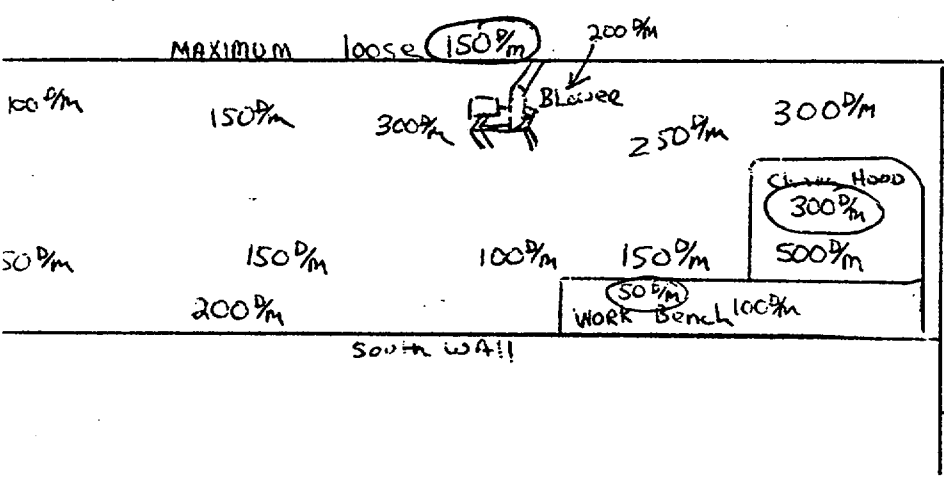 200 D/m
MAXIMUM loose 150 D/m
100 D/m 150 D/m 300 D/m Blower 250 D/m 300 D/m
HOOD
300 D/m
50 D/m 150 D/m 100 D/m 150 D/m 500 D/m
200 D/m 50 D/m
WORK Bench 100 D/m
South WAll